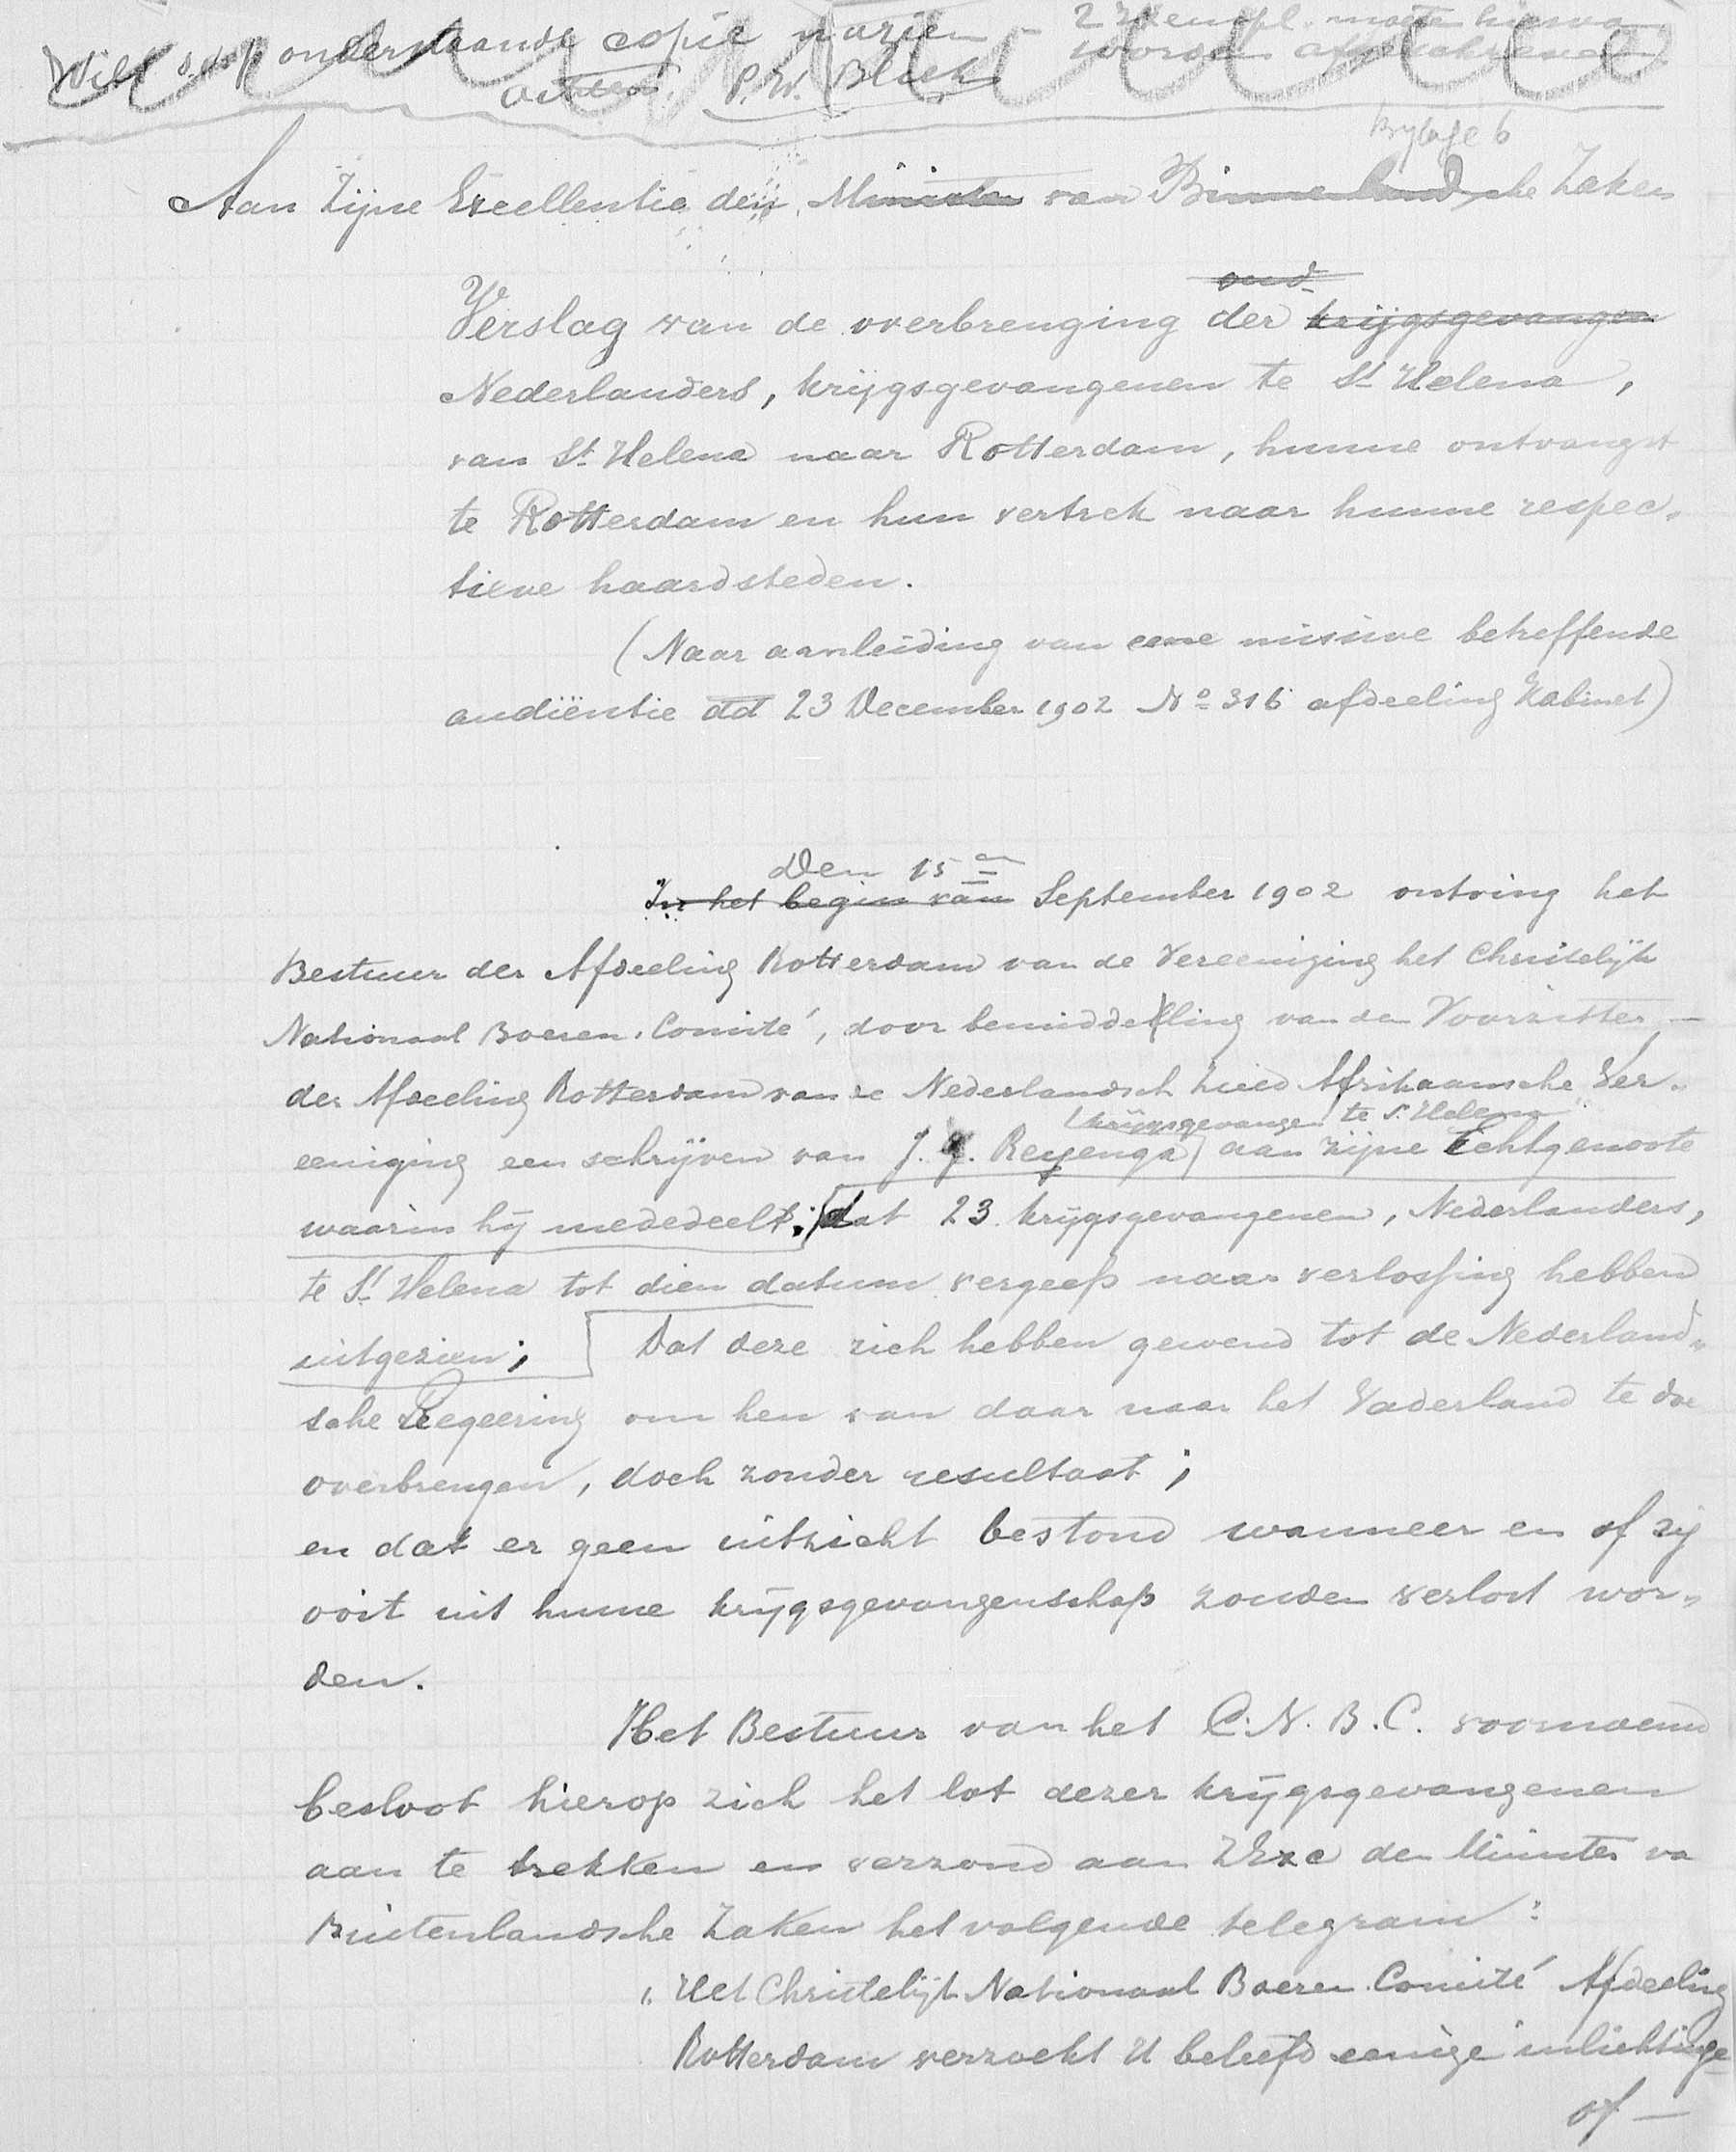 Wilt s.v.p. onderstaande copie nazien
2 Exempl. moeten hiervan
worden afgeschreven.
P.W. Blick
Bylage 6
Aan Zijne Excellentie den Minister van Binnenlandsche Zaken
oud-
Verslag van de overbrenging der krijgsgevangen
Nederlanders, krijgsgevangenen te St Helena,
van St. Helena naar Rotterdam, hunne ontvangst
te Rotterdam en hun vertrek naar hunne respec-
tieve haardsteden.
(Naar aanleiding van eene missive betreffende
audiëntie dd 23 December 1902 No 316 afdeeling Kabinet)
Den 15en
In het begin van September 1902 ontving het
Bestuur der Afdeeling Rotterdam van de Vereeniging het Christelijk
Nationaal Boeren-Comité, door bemiddeling van den Voorzitter
der Afdeeling Rotterdam van de Nederlandsch Zuid Afrikaansche Ver-
krijgsgevangen te St. Helena
eeniging een schrijven van J. J. Reyenga aan zijne Echtgenoote
waarin hij mededeelt; dat 23 krijgsgevangenen, Nederlanders,
te St. Helena tot dien datum vergeefs naar verlossing hebben
uitgezien; Dat deze zich hebben gewend tot de Nederland-
sche Regeering om hen van daar naar het Vaderland te doe
overbrengen, doch zonder resultaat;
en dat er geen uitzicht bestond wanneer en of zij
ooit uit hunne krijgsgevangenschap zouden verlost wor-
den.
Het Bestuur van het C.N.B.C. voornoemd
besloot hierop zich het lot dezer krijgsgevangenen
aan te trekken en verzond aan ZExc den Minister va
Buitenlandsche Zaken het volgende telegram:
"Het Christelijk Nationaal Boeren Comité Afdeeling
Rotterdam verzoekt U beleefd eenige inlichtinge
of —